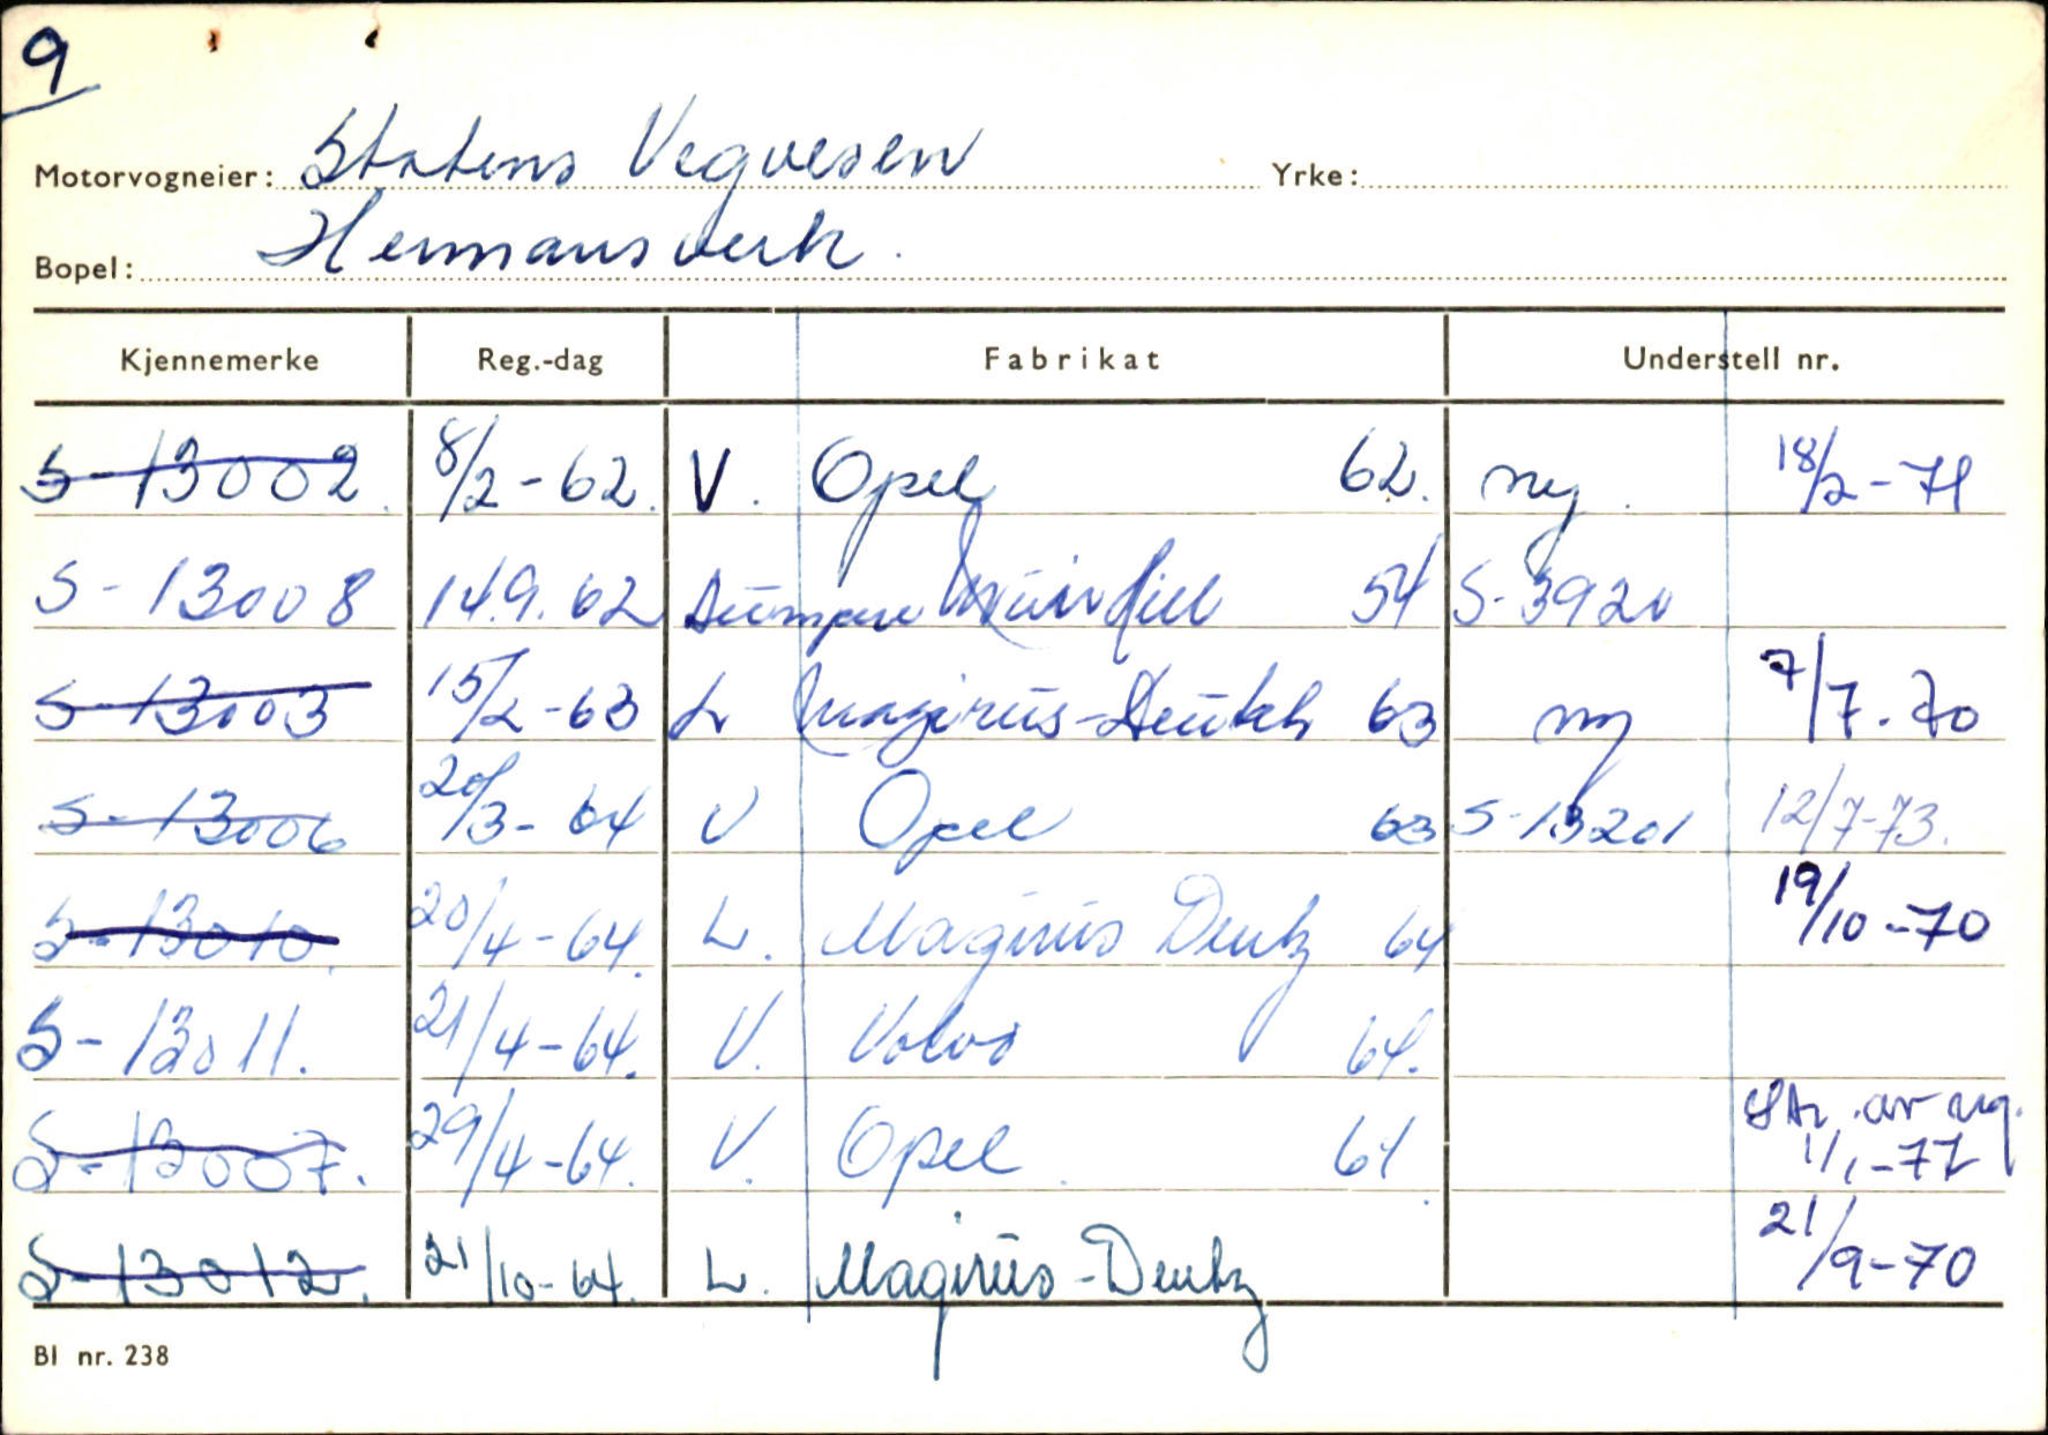 9
Motorvogneier: Statens Vegvesen Yrke:
Bopel: Hermansverk.
Kjennemerke Reg.-dag Fabrikat Understell nr.
S-13002. 8/2-62. V. Opel 62. ny. 18/2-71
S-13008 14.9.62 Dumper Muirhill 54 S-3920
S-13003 15/2-63 L Magirüs-Deütch 63 ny 7/7-70
S-13006 20/3-64 V Opel 63 S-13201 12/7-73.
S-13010. 20/4-64. L. Magirüs Deutz 64 19/10-70
S-13011. 21/4-64. V. Volvo 64.
S-13007. 29/4-64. V. Opel 64. av reg. 1/1-77
S-13012. 21/10-64. L. Magirüs-Deutz 21/9-70
Bl nr. 238